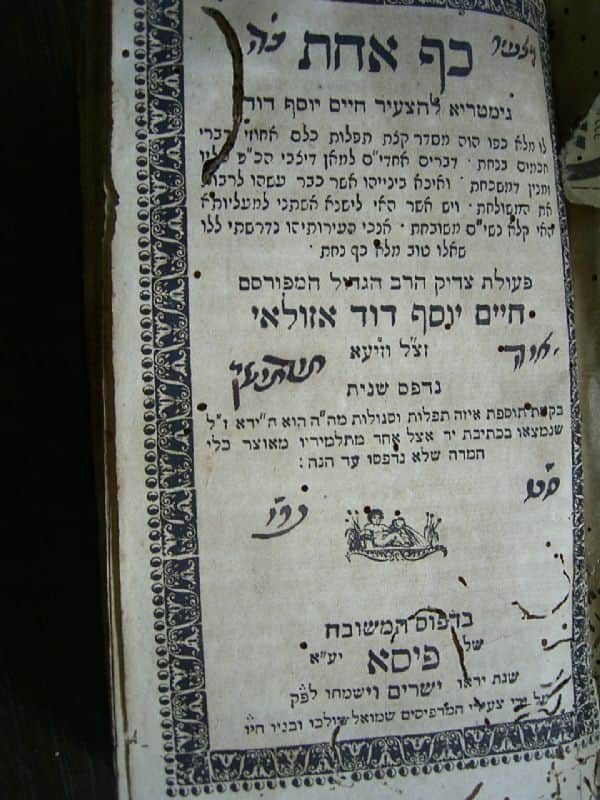 כף אחת
גימטריא להצעיר חיים יוסף דוד
לו מלא כפו הוה מסדר קצת תפלות כלם אחוזי דברי
חכמים בנחת · דברים אחדי"ם למאן דיצבי הכ"פ
ומנין דמשכחת · ואיכא בינייהו אשר כבר עשהו לרבות
את המשולחת · ויש אשר האי לישנא אשתני למעליותא
האי קלא נשי"ם משובחת · אנכי העירותיהו נדרשתי ללו
שאלו טוב מלא כף נחת ·
פעולת צדיק הרב הגדול המפורסם
חיים יוסף דוד אזולאי
זצ"ל וזיעא
נדפס שנית
בקצת תוספת איזה תפלות וסגולות מה"ה הוא ה"ירא ז"ל
שנמצאו בכתיבת יד אצל אחד מתלמידיו מאוצר כלי
חמדה שלא נדפסו עד הנה :
בדפוס המשובח
של
פיסא יע"א
שנת יראו ישרים וישמחו לפק
צעירי המדפיסים שמואל מולכו ובניו חיו